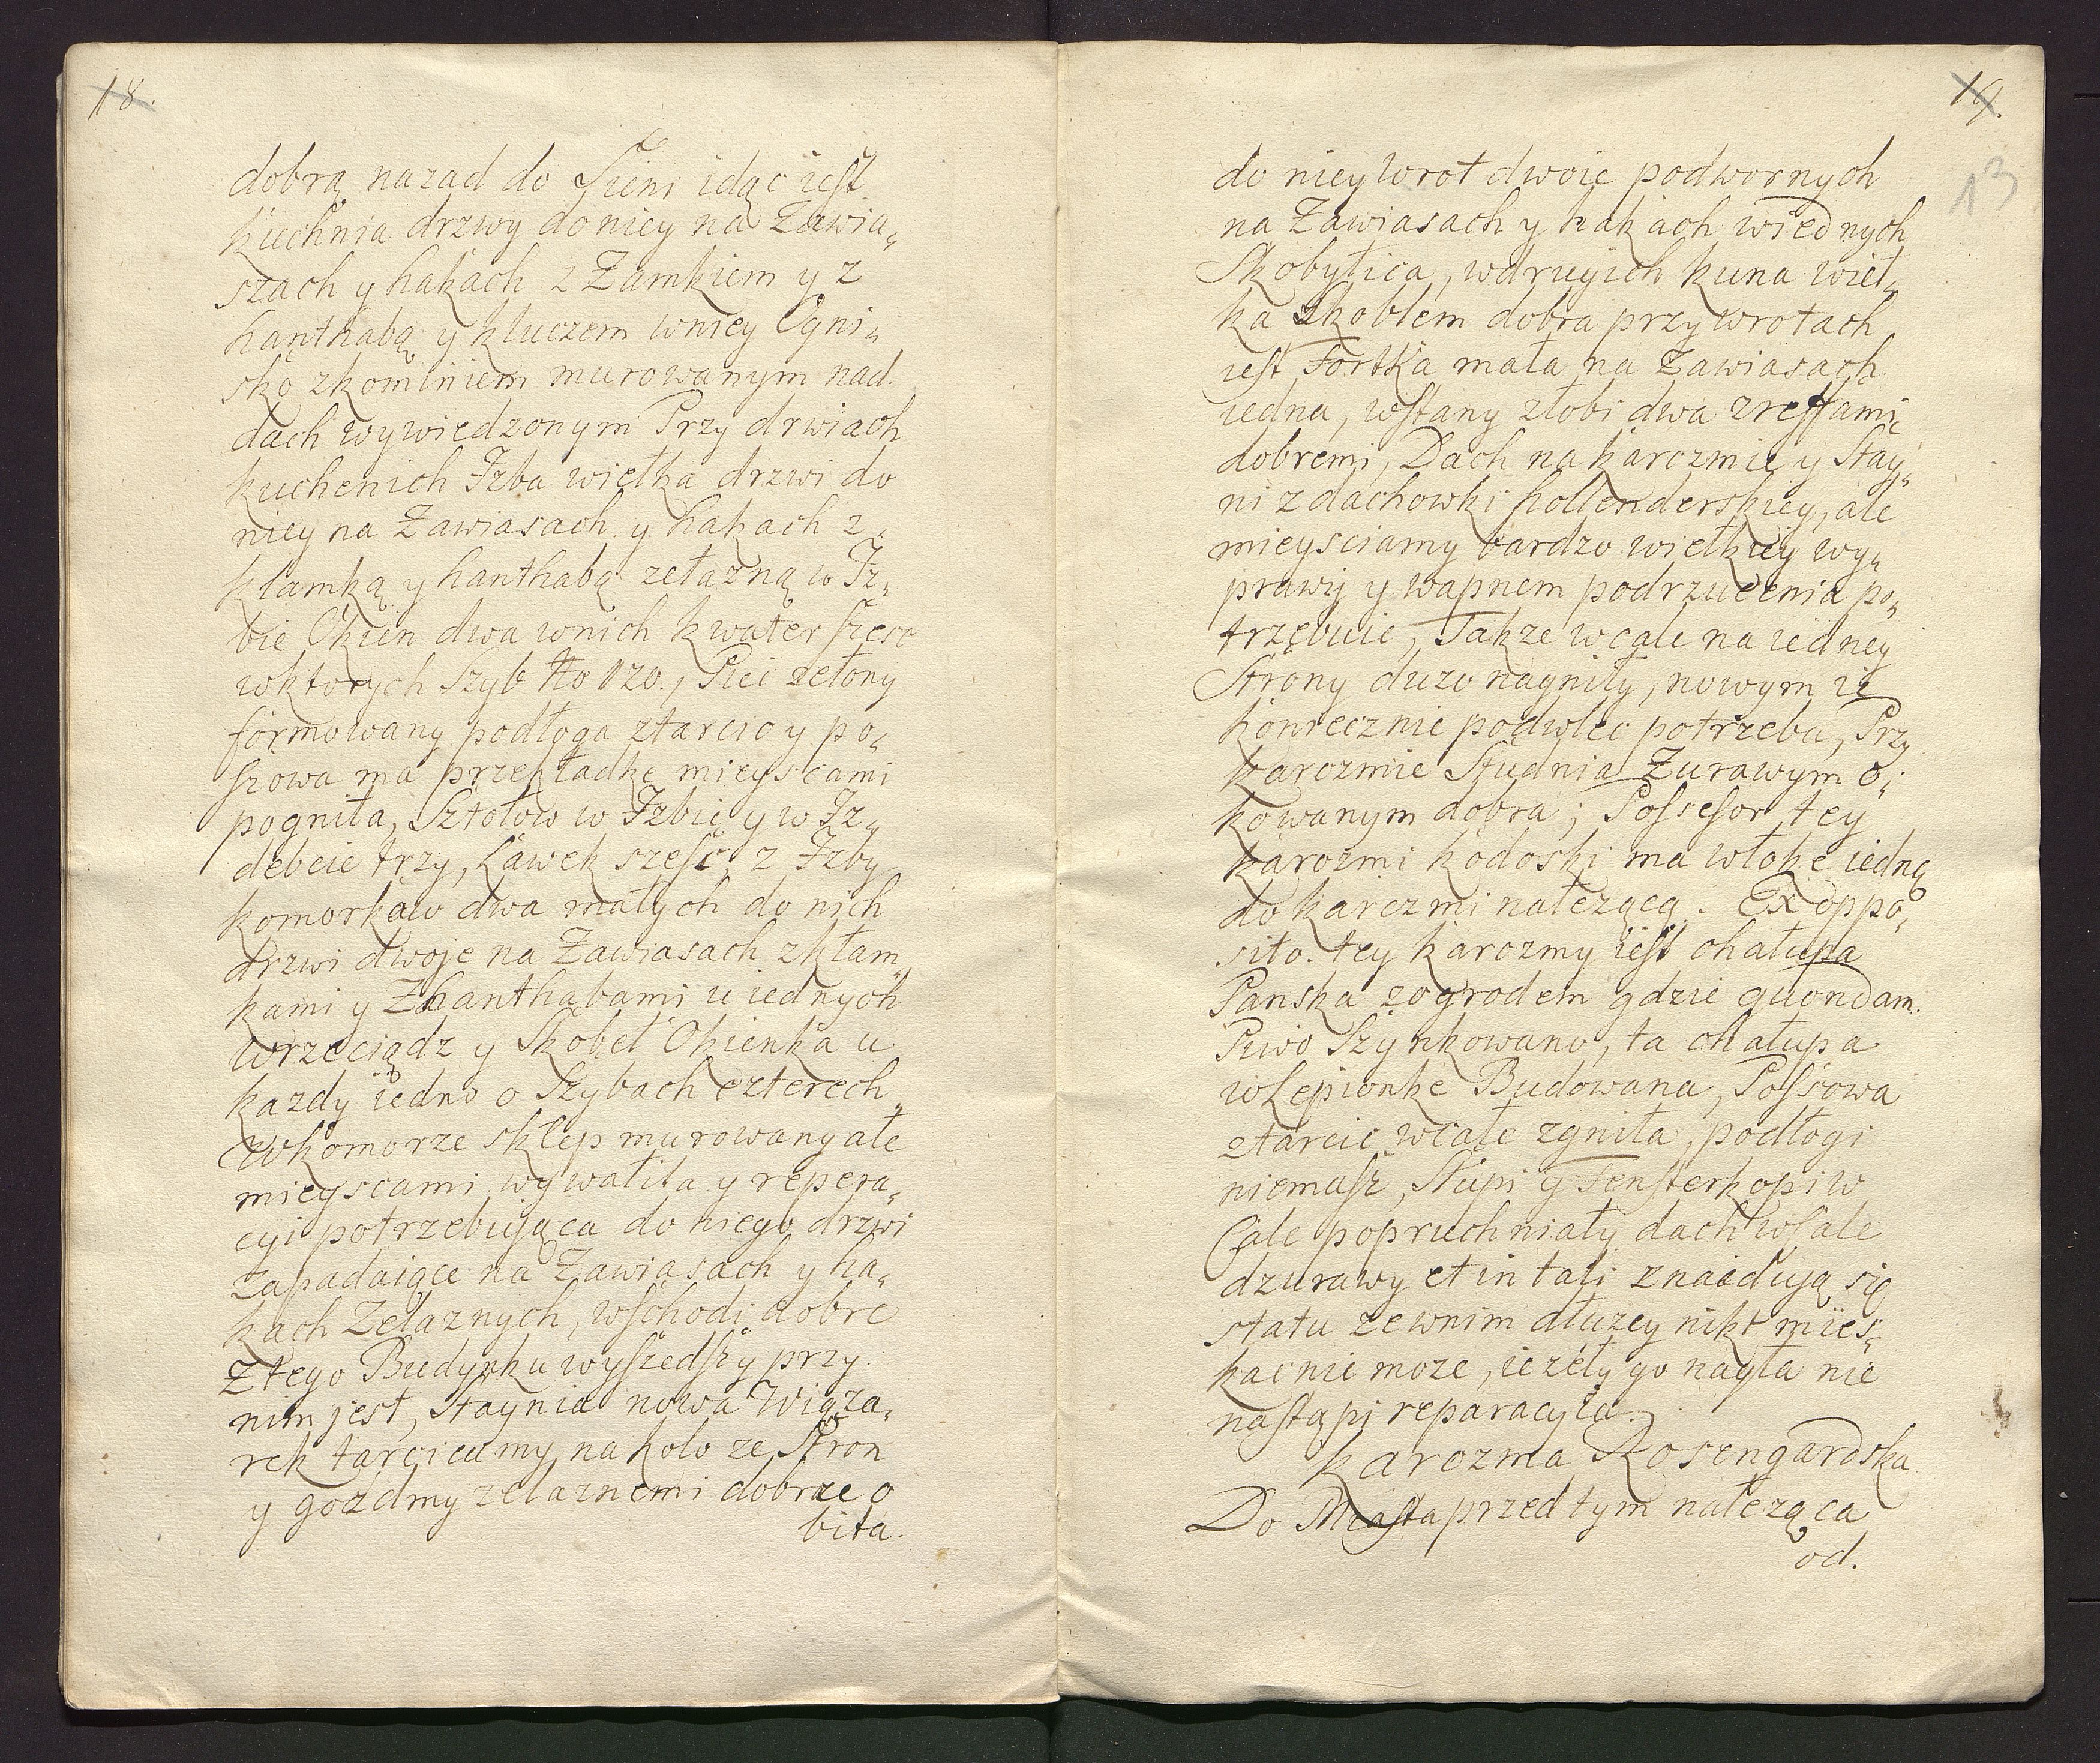 18.
dobrą nazad do Sieni idąc iest
kuchnia drzwy do niey na Zawia„
szach y hakach z Zamkiem y z
hanthabą y kluczem wniey Ogni„
sko zkominiem murowanym nad.
dach wywiedzonym Przy drwiach
kuchenich Izba wielka drzwi do
niey na Zawiasach y hakach z„
klamką y hanthabą zelazną w Iz„
bie Okien dwa wnich kwater szesc
wktorych Szyb No 120., Piec zelony
formowany podłoga ztarcic y po„
szowa ma przekładkę mieyscami
pogniła, Sztołow w Izbie y w Iz„
debcie trzy, Ławek szesc, z Izby
komorkaw dwa małych do nich
drzwi dwoje na Zawiasach zkłam„
kami y Zhanthabami u iednych
wrzeciądz y Skobel Okienka u
kazdy iedno o Szybach czterech„
Wkomorze sklep murowany ale
mieyscami wywaliła y repera„
cyi potrzebująca do niego drzwi
zapadaiące na Zawiasach y ha„
kach Zelaznych, wschodi dobre
Ztego Budynku wyszedszy przy
nim jest, Staynia nowa Wiąza„
rek tarcicamy na kolo ze Stron
y gozdmy zelaznemi dobrze o
bita.
19.
13
do niey wrot dwoie podwornych
na Zawiasach y hakach wiednych
Skobylica, wdrugich kuna wiel„
ka Skoblem dobra przy wrotach
iest Fortka mała na Zawiasach
iedna, wstany złobi dwa zressami
dobremi, Dach na karczmie y Stay„
ni z dachowki hollenderskiey, ale
mieysciamy bardzo wielkiey wy„
prawy y wapnem podrzucenia po„
trzębuie, Takze wcale na iedney
Strony duzo nagniły, nowym ie
koniecznie podwlec potrzeba, Przy
karczmie Studnia Zurawym o„
kowanym dobra; Possessor tey
karczmi kodoski ma włokę iedną
do karczmi nalezącą. Ex oppo„
sito. tey karczmy iest chałupa
Panska zogrodem gdzie quondam.
Piwo Szynkowano, ta chałupa
wLepionke Budowana, Possowa
ztarcic wcale zgniła, podłogi
niemasz, Słupi y Fensterkopi w
Cale popruchniały dach wcale
dzurawy et in tali znaidują się
statu ze wnim dłuzey nikt mies„
kac nie moze, iezely go nagła nie
nastąpi reparacyia.
karczma Rosengardska
Do Miasta przed tym nalezącą
od.